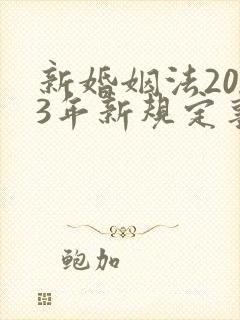 新婚姻法20
3年新规定
鲍加